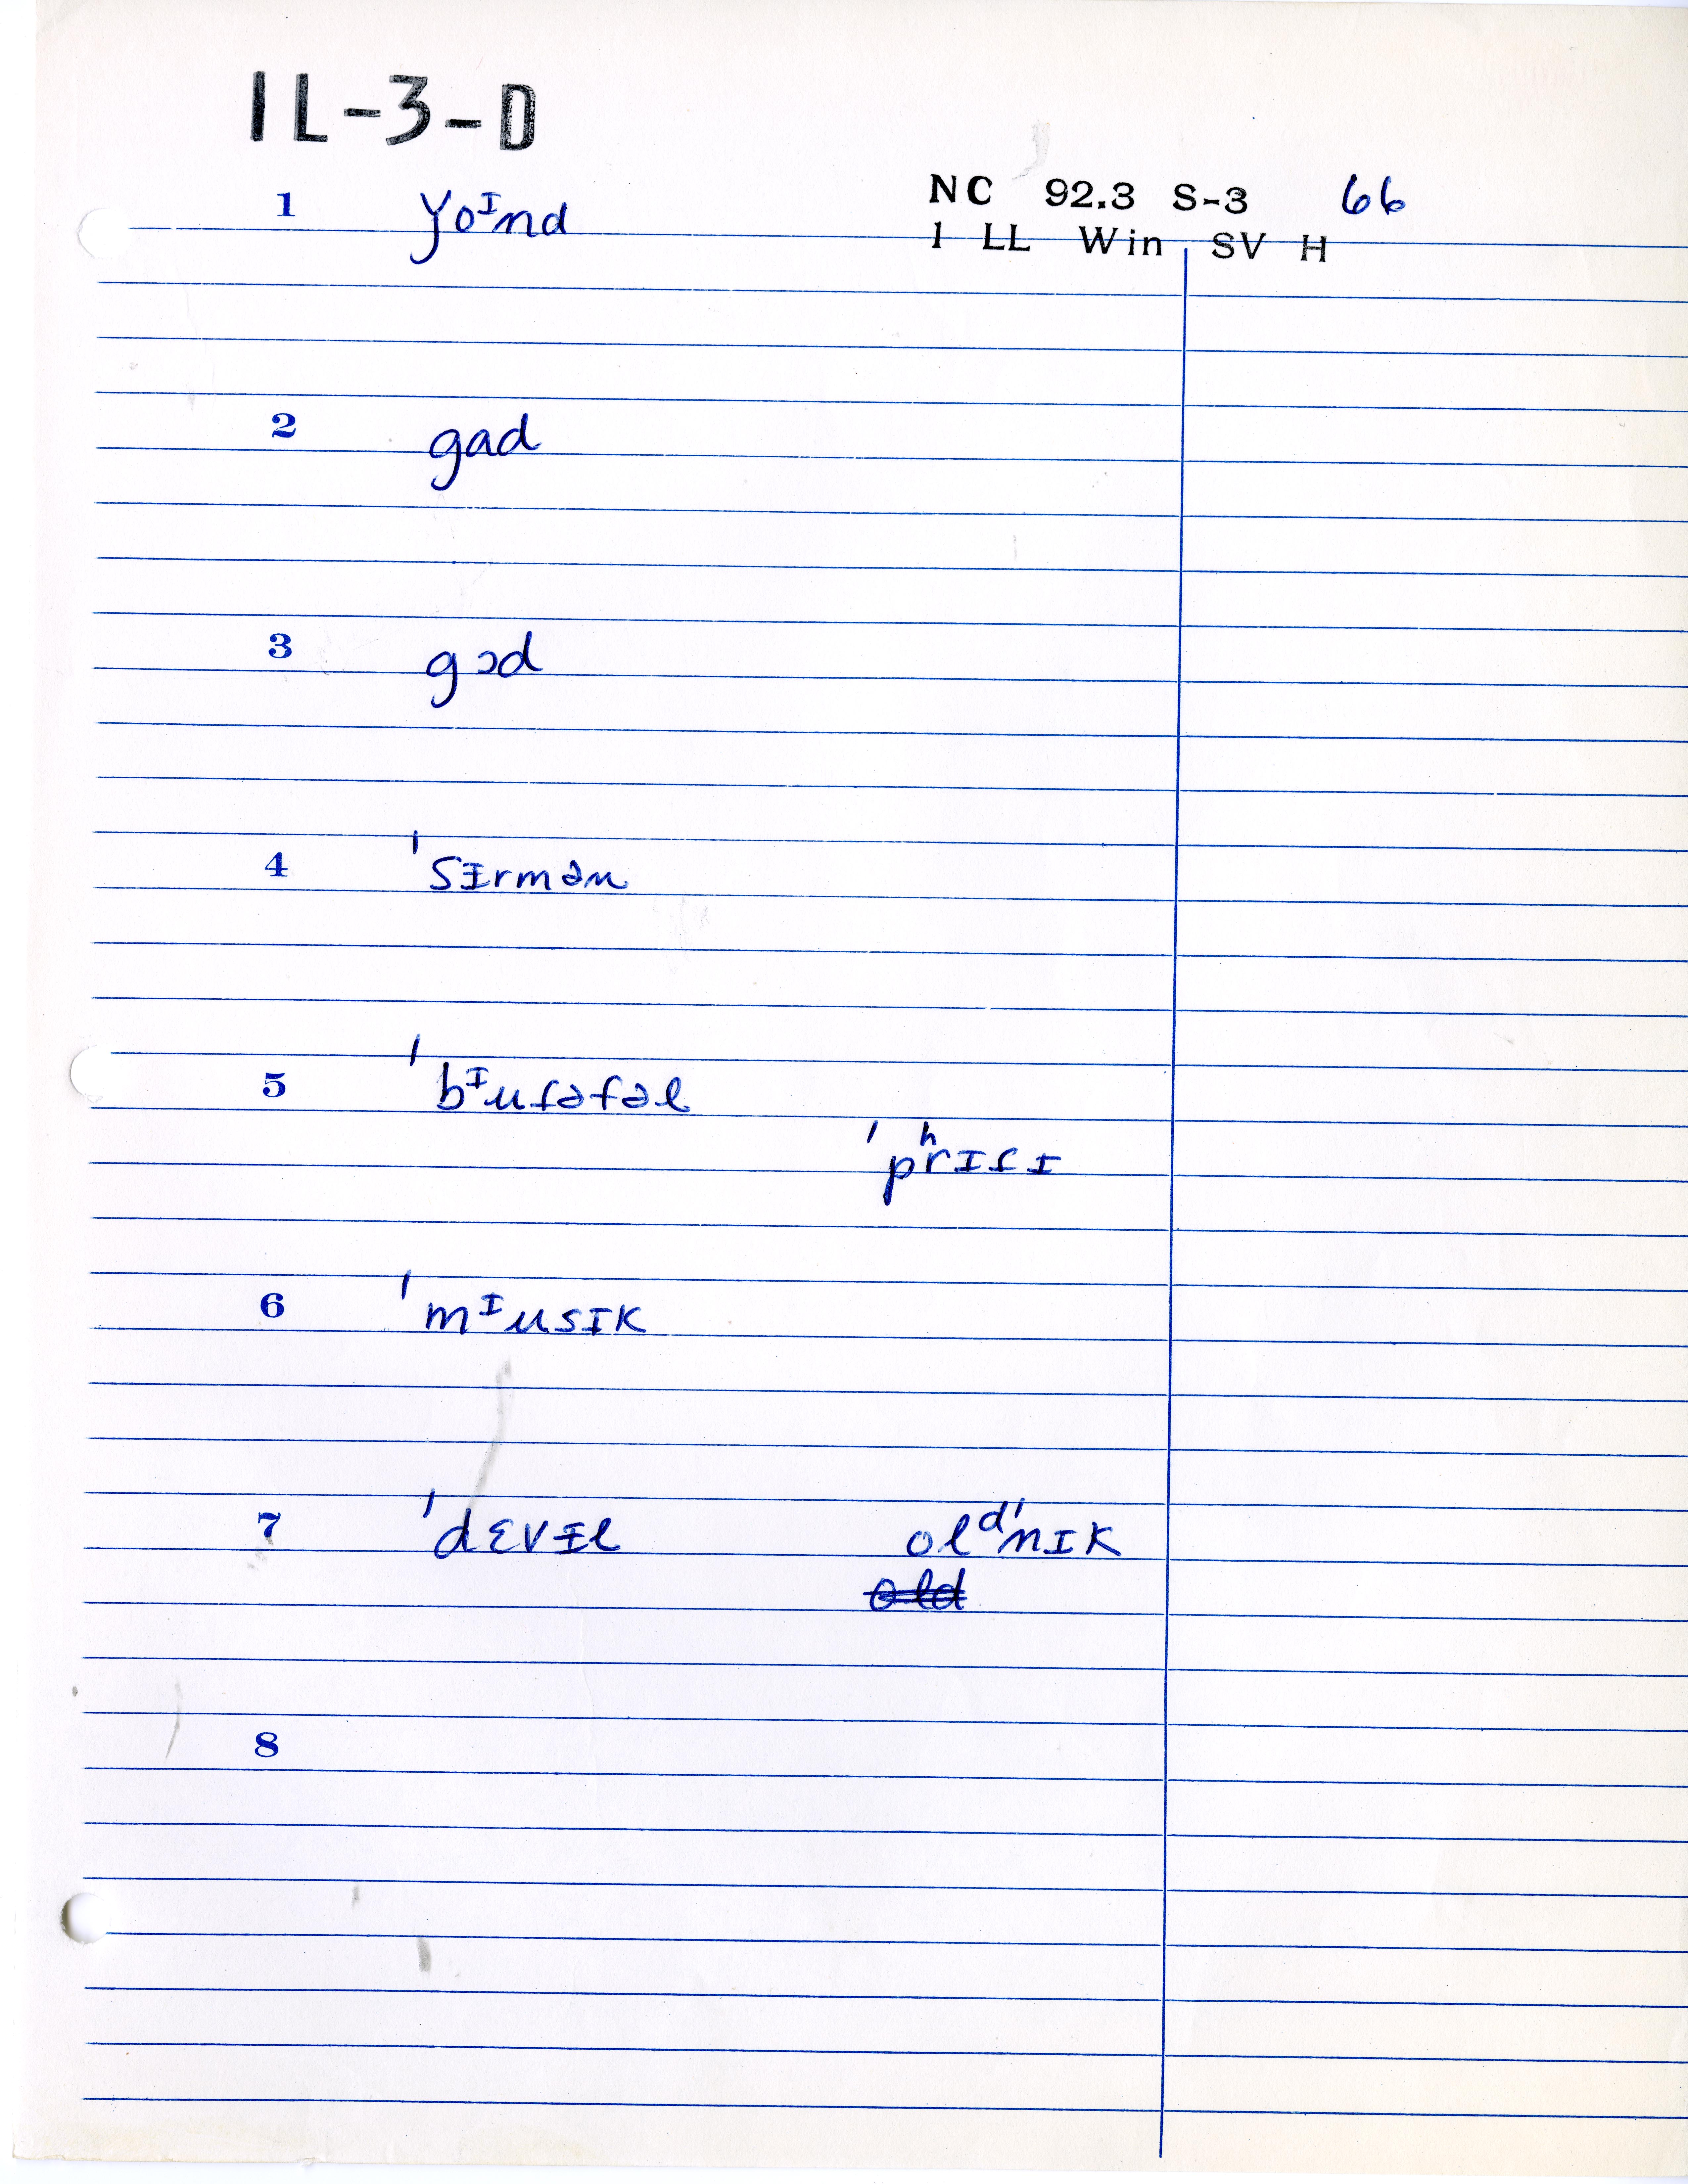 1L-3-D
NC 92.3 S-3 66
1 LL Win SV H
1 ɣoᴵnd
2 gad
3 gɔd
4 ˈsɪrmən
5 ˈbᴵuɾəfəl
ˈpʰrɪɾɪ
6 ˈmᴵusɪk
7 ˈdɛvɨl olᵈˈnɪk
old
8